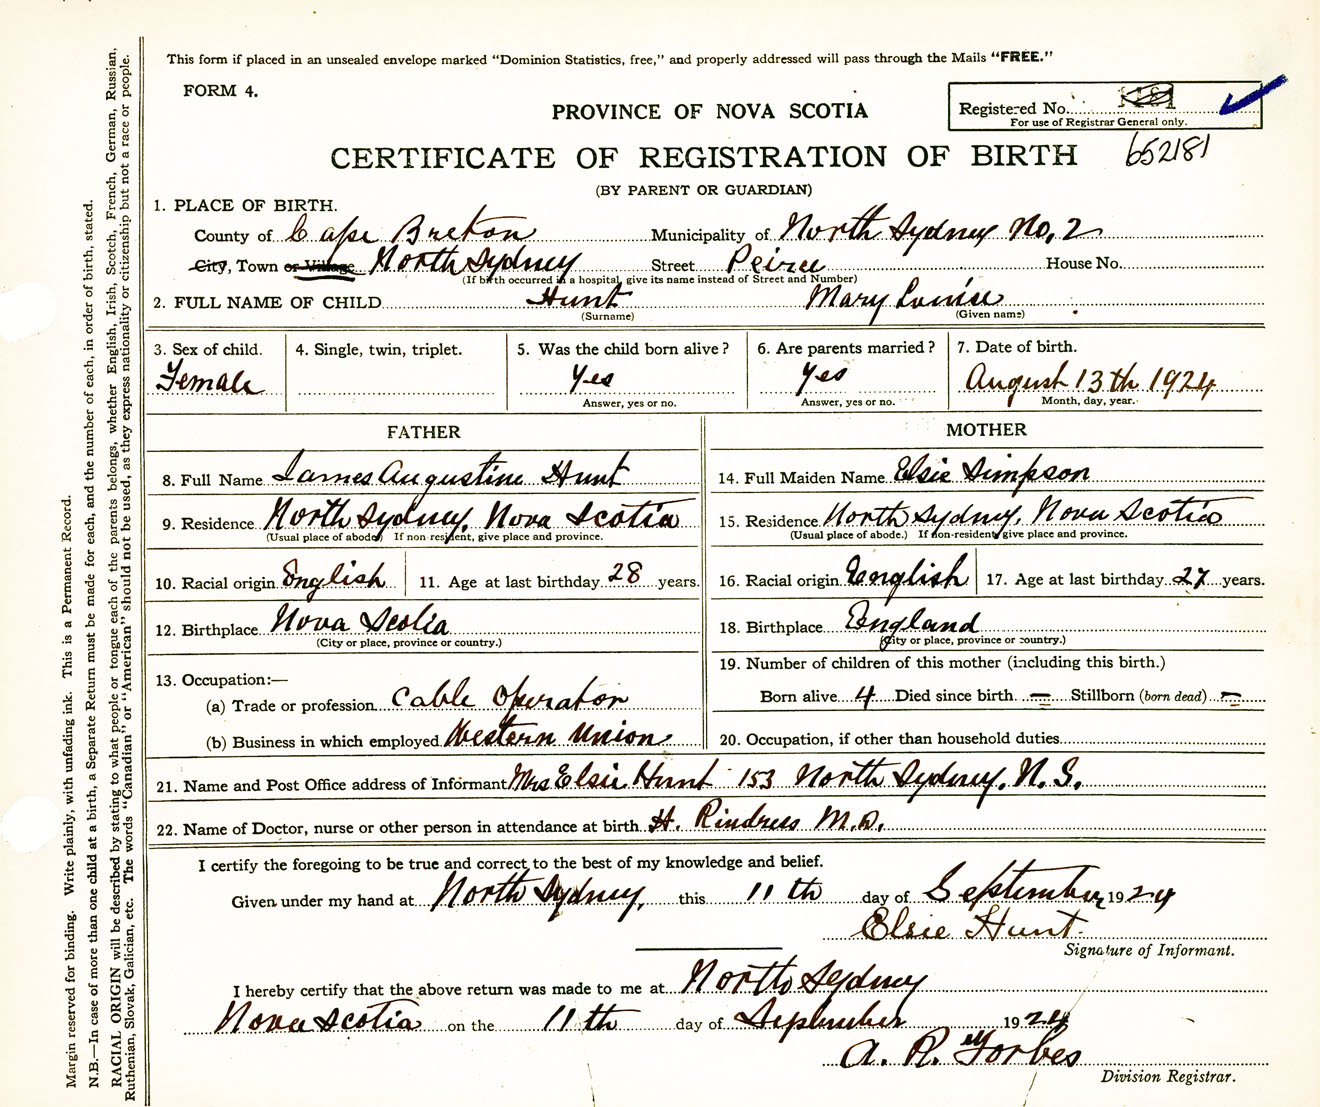 This form if placed in an unsealed envelope marked "Dominion Statistics, free," and properly addressed will pass through the Mails "FREE."
FORM 4.
PROVINCE OF NOVA SCOTIA
Registered No.
For use of Registrar General only.
652181
CERTIFICATE OF REGISTRATION OF BIRTH
(BY PARENT OR GUARDIAN)
1. PLACE OF BIRTH.
County of Cape Breton Municipality of North Sydney No, 2
City, Town or Village North Sydney Street Peirce House No.
(If birth occurred in a hospital, give its name instead of Street and Number)
2. FULL NAME OF CHILD Hunt Mary Louise
(Surname) (Given name)
3. Sex of child. 4. Single, twin, triplet. 5. Was the child born alive? 6. Are parents married? 7. Date of birth.
Female Yes Yes August 13th 1924
Answer, yes or no. Answer, yes or no. Month, day, year.
FATHER
8. Full Name James Augustine Hunt
9. Residence North Sydney, Nova Scotia
(Usual place of abode) If non-resident, give place and province.
10. Racial origin English 11. Age at last birthday 28 years.
12. Birthplace Nova Scotia
(City or place, province or country.)
13. Occupation:—
(a) Trade or profession Cable Operator
(b) Business in which employed Western Union
MOTHER
14. Full Maiden Name Elsie Simpson
15. Residence North Sydney, Nova Scotia
(Usual place of abode.) If non-resident give place and province.
16. Racial origin English 17. Age at last birthday 27 years.
18. Birthplace England
(City or place, province or country.)
19. Number of children of this mother (including this birth.)
Born alive 4 Died since birth — Stillborn (born dead) —
20. Occupation, if other than household duties
21. Name and Post Office address of Informant Mrs Elsie Hunt 153 North Sydney, N.S.
22. Name of Doctor, nurse or other person in attendance at birth H. Rindress M.D.
I certify the foregoing to be true and correct to the best of my knowledge and belief.
Given under my hand at North Sydney, this 11th day of September 1924
Elsie Hunt
Signature of Informant.
I hereby certify that the above return was made to me at North Sydney
Nova Scotia on the 11th day of September 1924
A. R. Forbes
Division Registrar.
Margin reserved for binding. Write plainly, with unfading ink. This is a Permanent Record.
N.B.—In case of more than one child at a birth, a Separate Return must be made for each, and the number of each, in order of birth, stated.
RACIAL ORIGIN will be described by stating to what people or tongue each of the parents belongs, whether English, Irish, Scotch, French, German, Russian,
Ruthenian, Slovak, Galician, etc. The words "Canadian" or "American" should not be used, as they express nationality or citizenship but not a race or people.